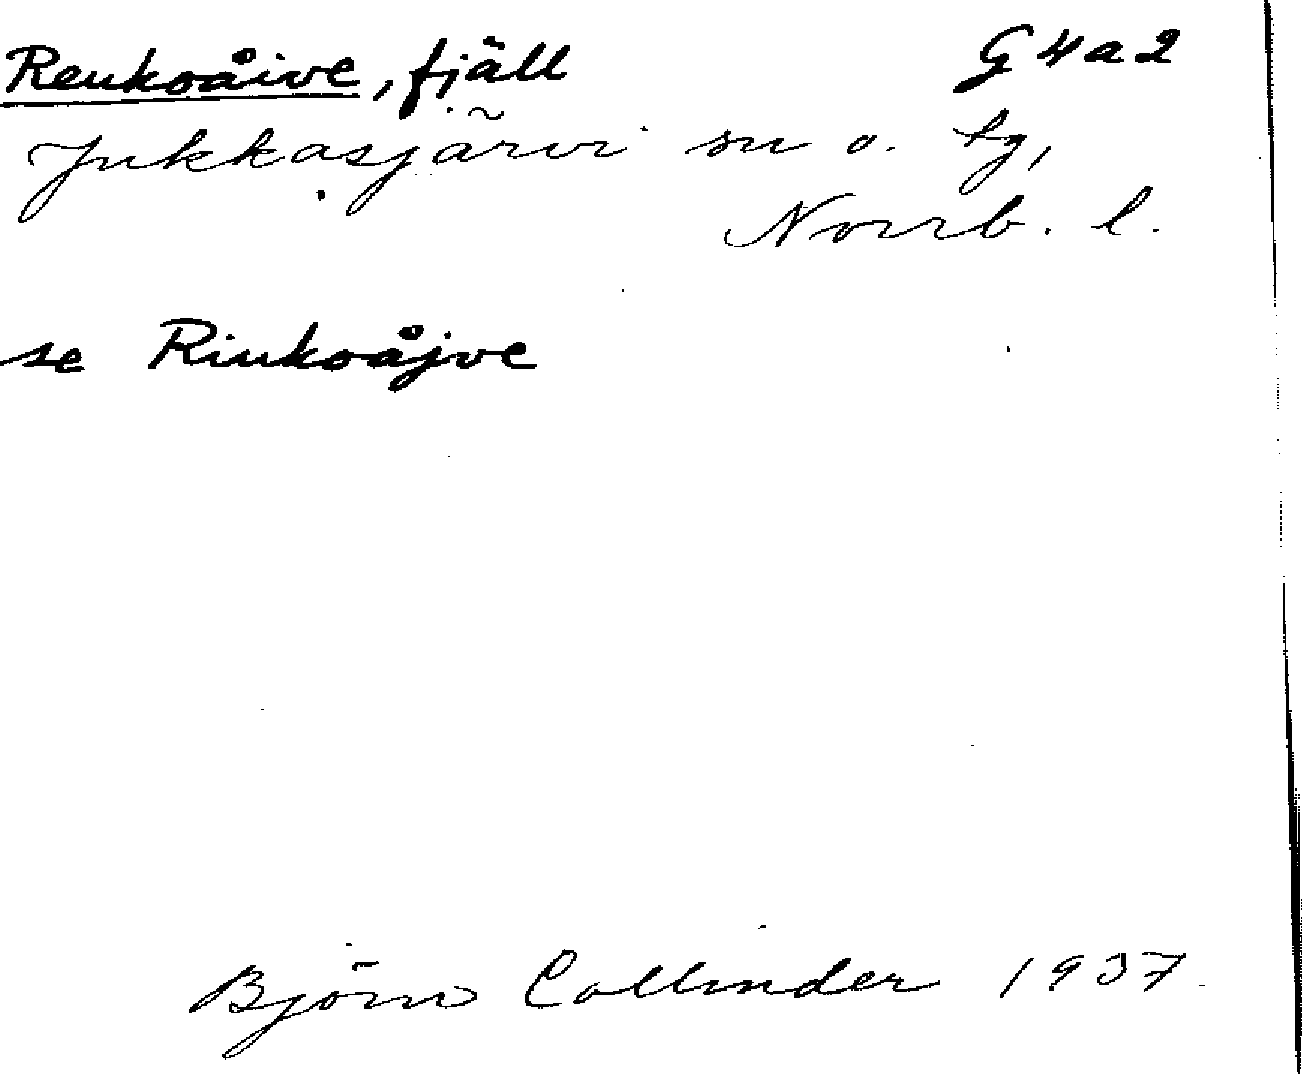 Reukoåive, fjäll G4a2
Jukkasjärvi sn o. tg,
Norrb. l.
se Riukoåjve
Björn Collinder 1937